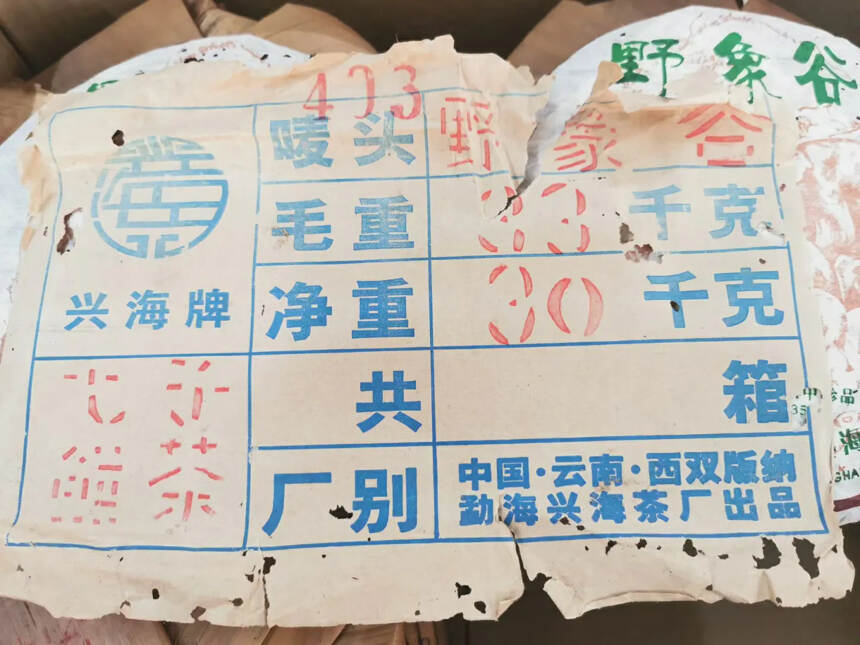 野象谷
403
唛头 野象谷
毛重 33 千克
兴海牌
净重 30 千克
七子
饼茶
共 箱
厂别
中国·云南·西双版纳
勐海兴海茶厂出品